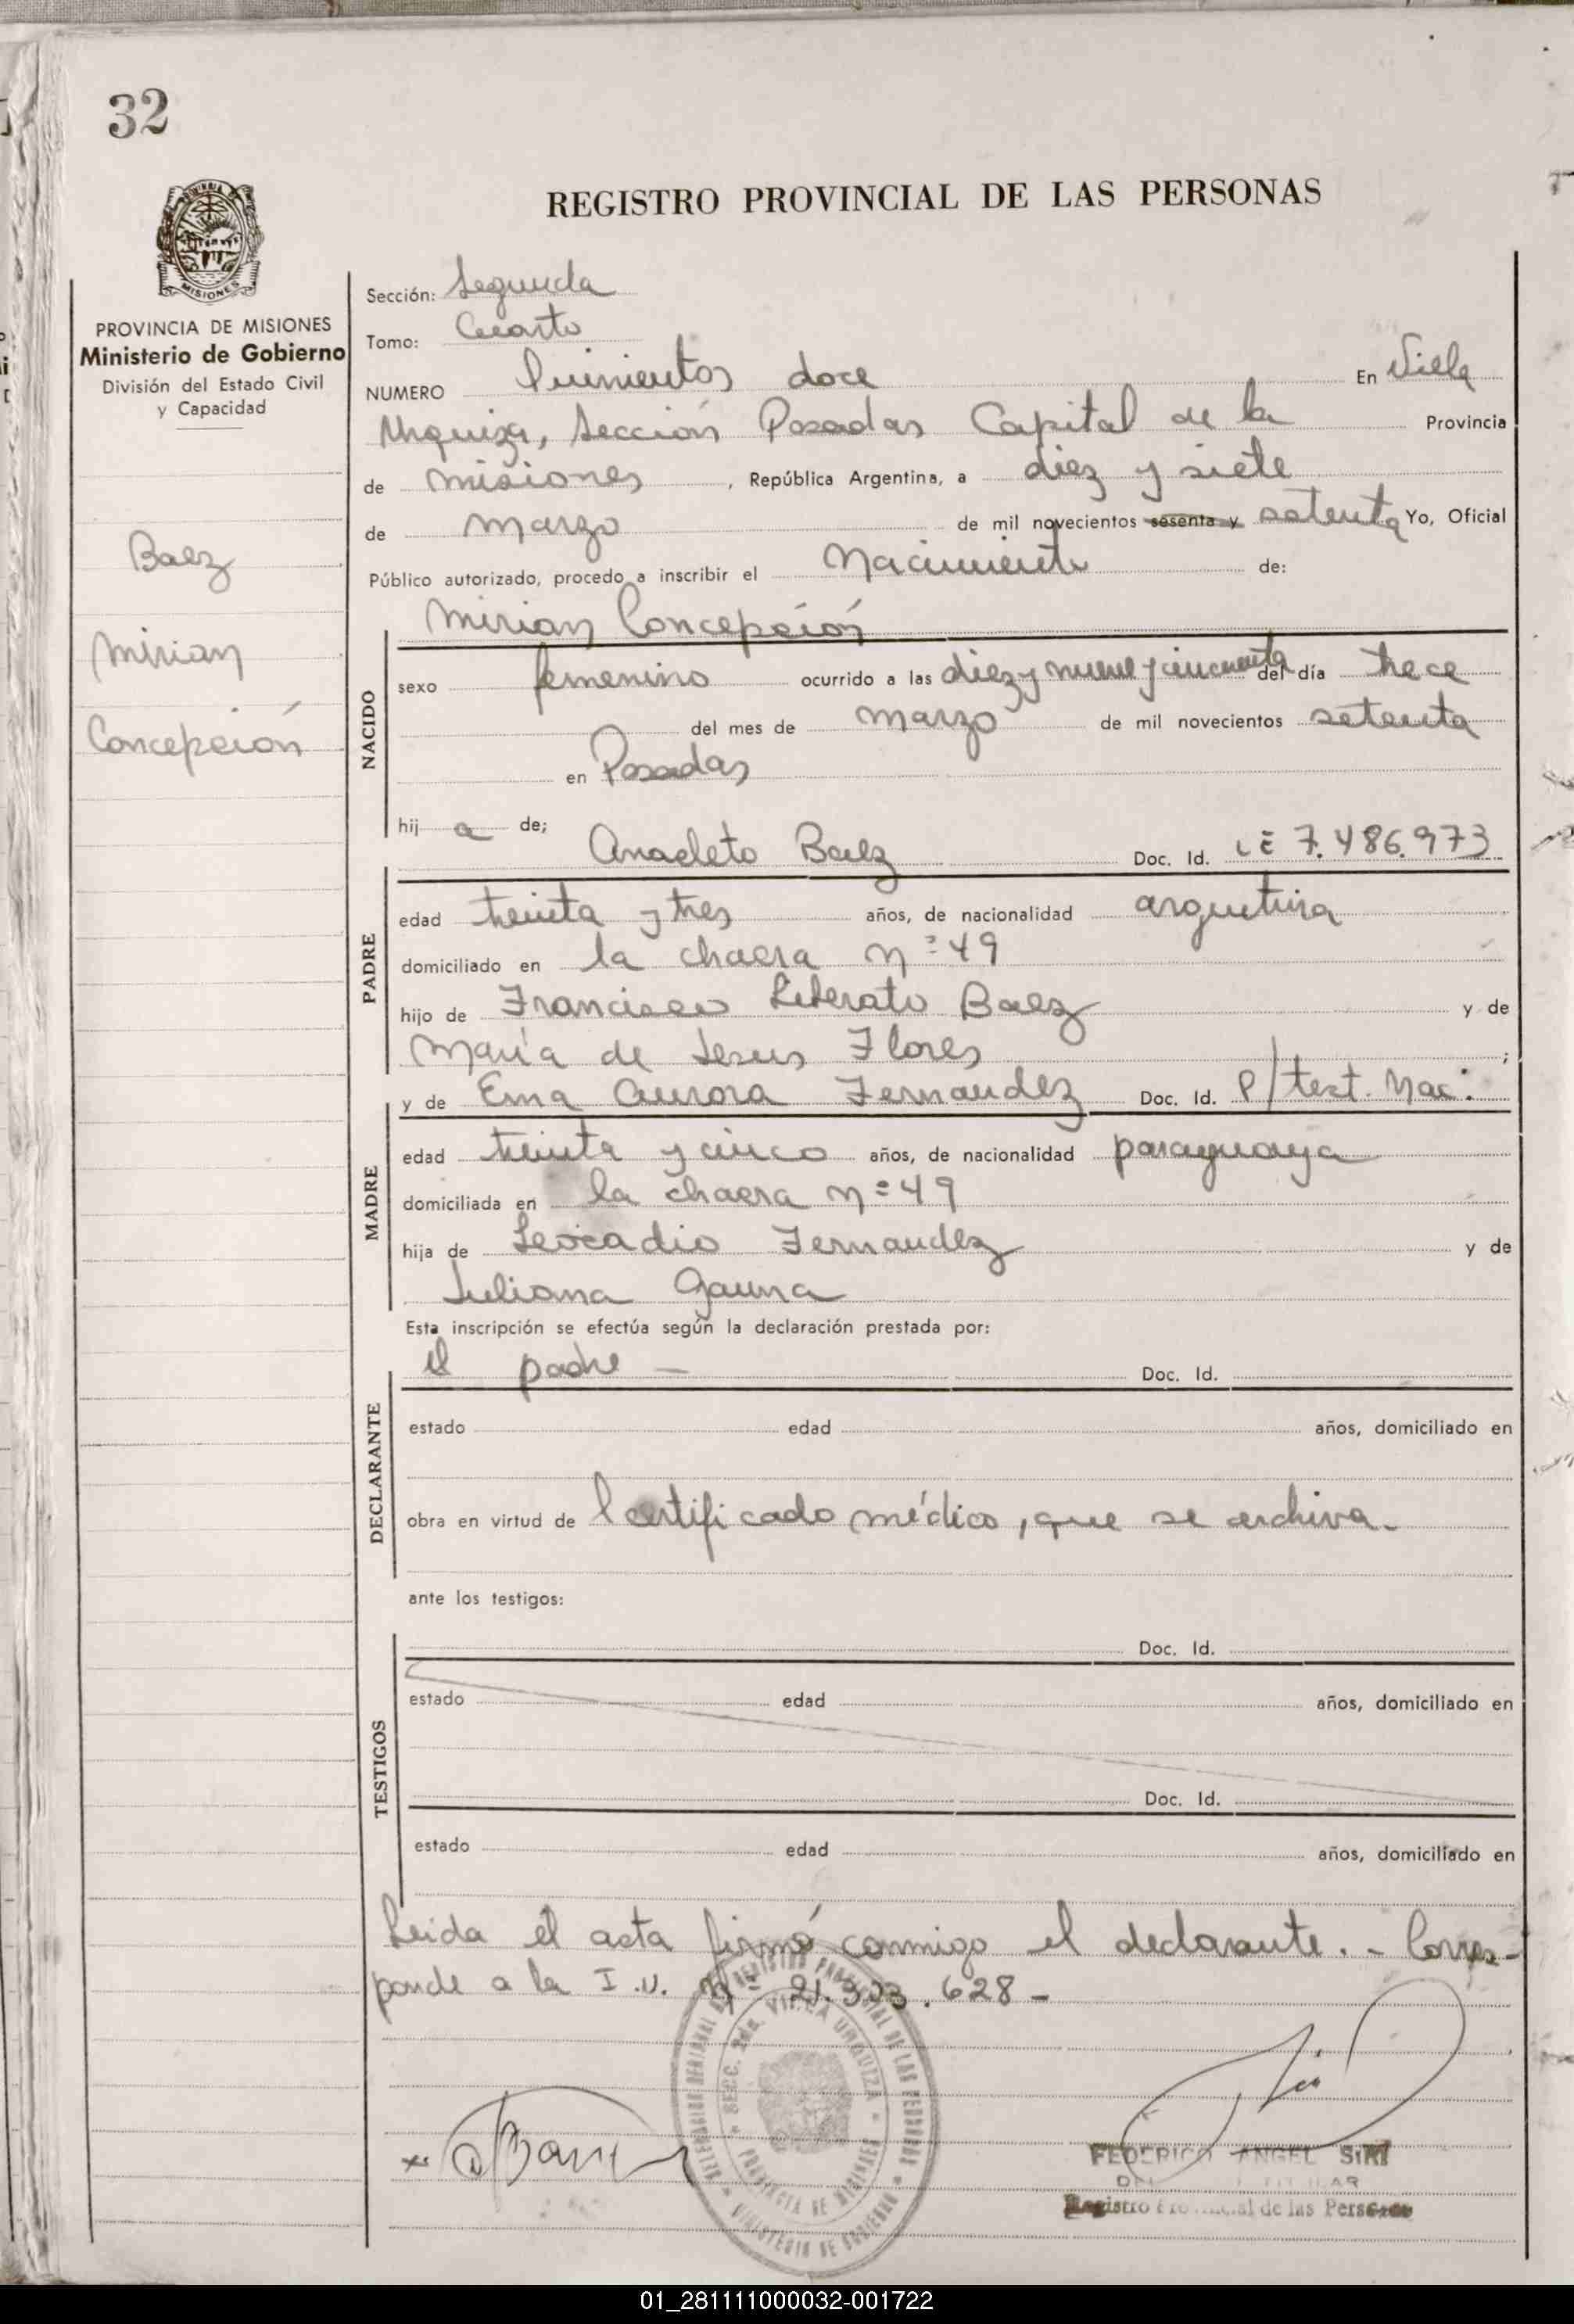 32
REGISTRO PROVINCIAL DE LAS PERSONAS
MISIONES
PROVINCIA DE MISIONES
Ministerio de Gobierno
División del Estado Civil
y Capacidad
Baez
Mirian
Concepción
Sección: Segunda
Tomo: Cuarto
NUMERO Quinientos doce En Villa
Urquiza, Sección Posadas Capital de la Provincia
de Misiones, República Argentina, a diez y siete
de Marzo de mil novecientos sesenta y setenta Yo, Oficial
Público autorizado, procedo a inscribir el Nacimiento de:
Mirian Concepción
NACIDO
sexo femenino ocurrido a las diez y nueve y cincuenta del día trece
del mes de Marzo de mil novecientos setenta
en Posadas
hij a de;
Anacleto Baez Doc. Id. LE 7.486.973
PADRE
edad treinta y tres años, de nacionalidad argentina
domiciliado en la chacra nº 49
hijo de Francisco Liberato Baez y de
María de Jesus Flores ;
y de Ema Aurora Fernandez Doc. Id. P/test. Nac.
MADRE
edad treinta y cinco años, de nacionalidad paraguaya
domiciliada en la chacra nº 49
hija de Leocadio Fernandez y de
Juliana Gauna
Esta inscripción se efectúa según la declaración prestada por:
el padre — Doc. Id.
DECLARANTE
estado edad años, domiciliado en
obra en virtud de Certificado médico, que se archiva.
ante los testigos:
Doc. Id.
TESTIGOS
estado edad años, domiciliado en
Doc. Id.
estado edad años, domiciliado en
Leida el acta firmó conmigo el declarante. - Corres-
ponde a la I.U. Nº 21.303.628 -
SECC. 2da. VILLA URQUIZA
PROVINCIA DE MISIONES
MINISTERIO DE GOBIERNO
FEDERICO ANGEL SIRI
Registro Provincial de las Personas
01_281111000032-001722